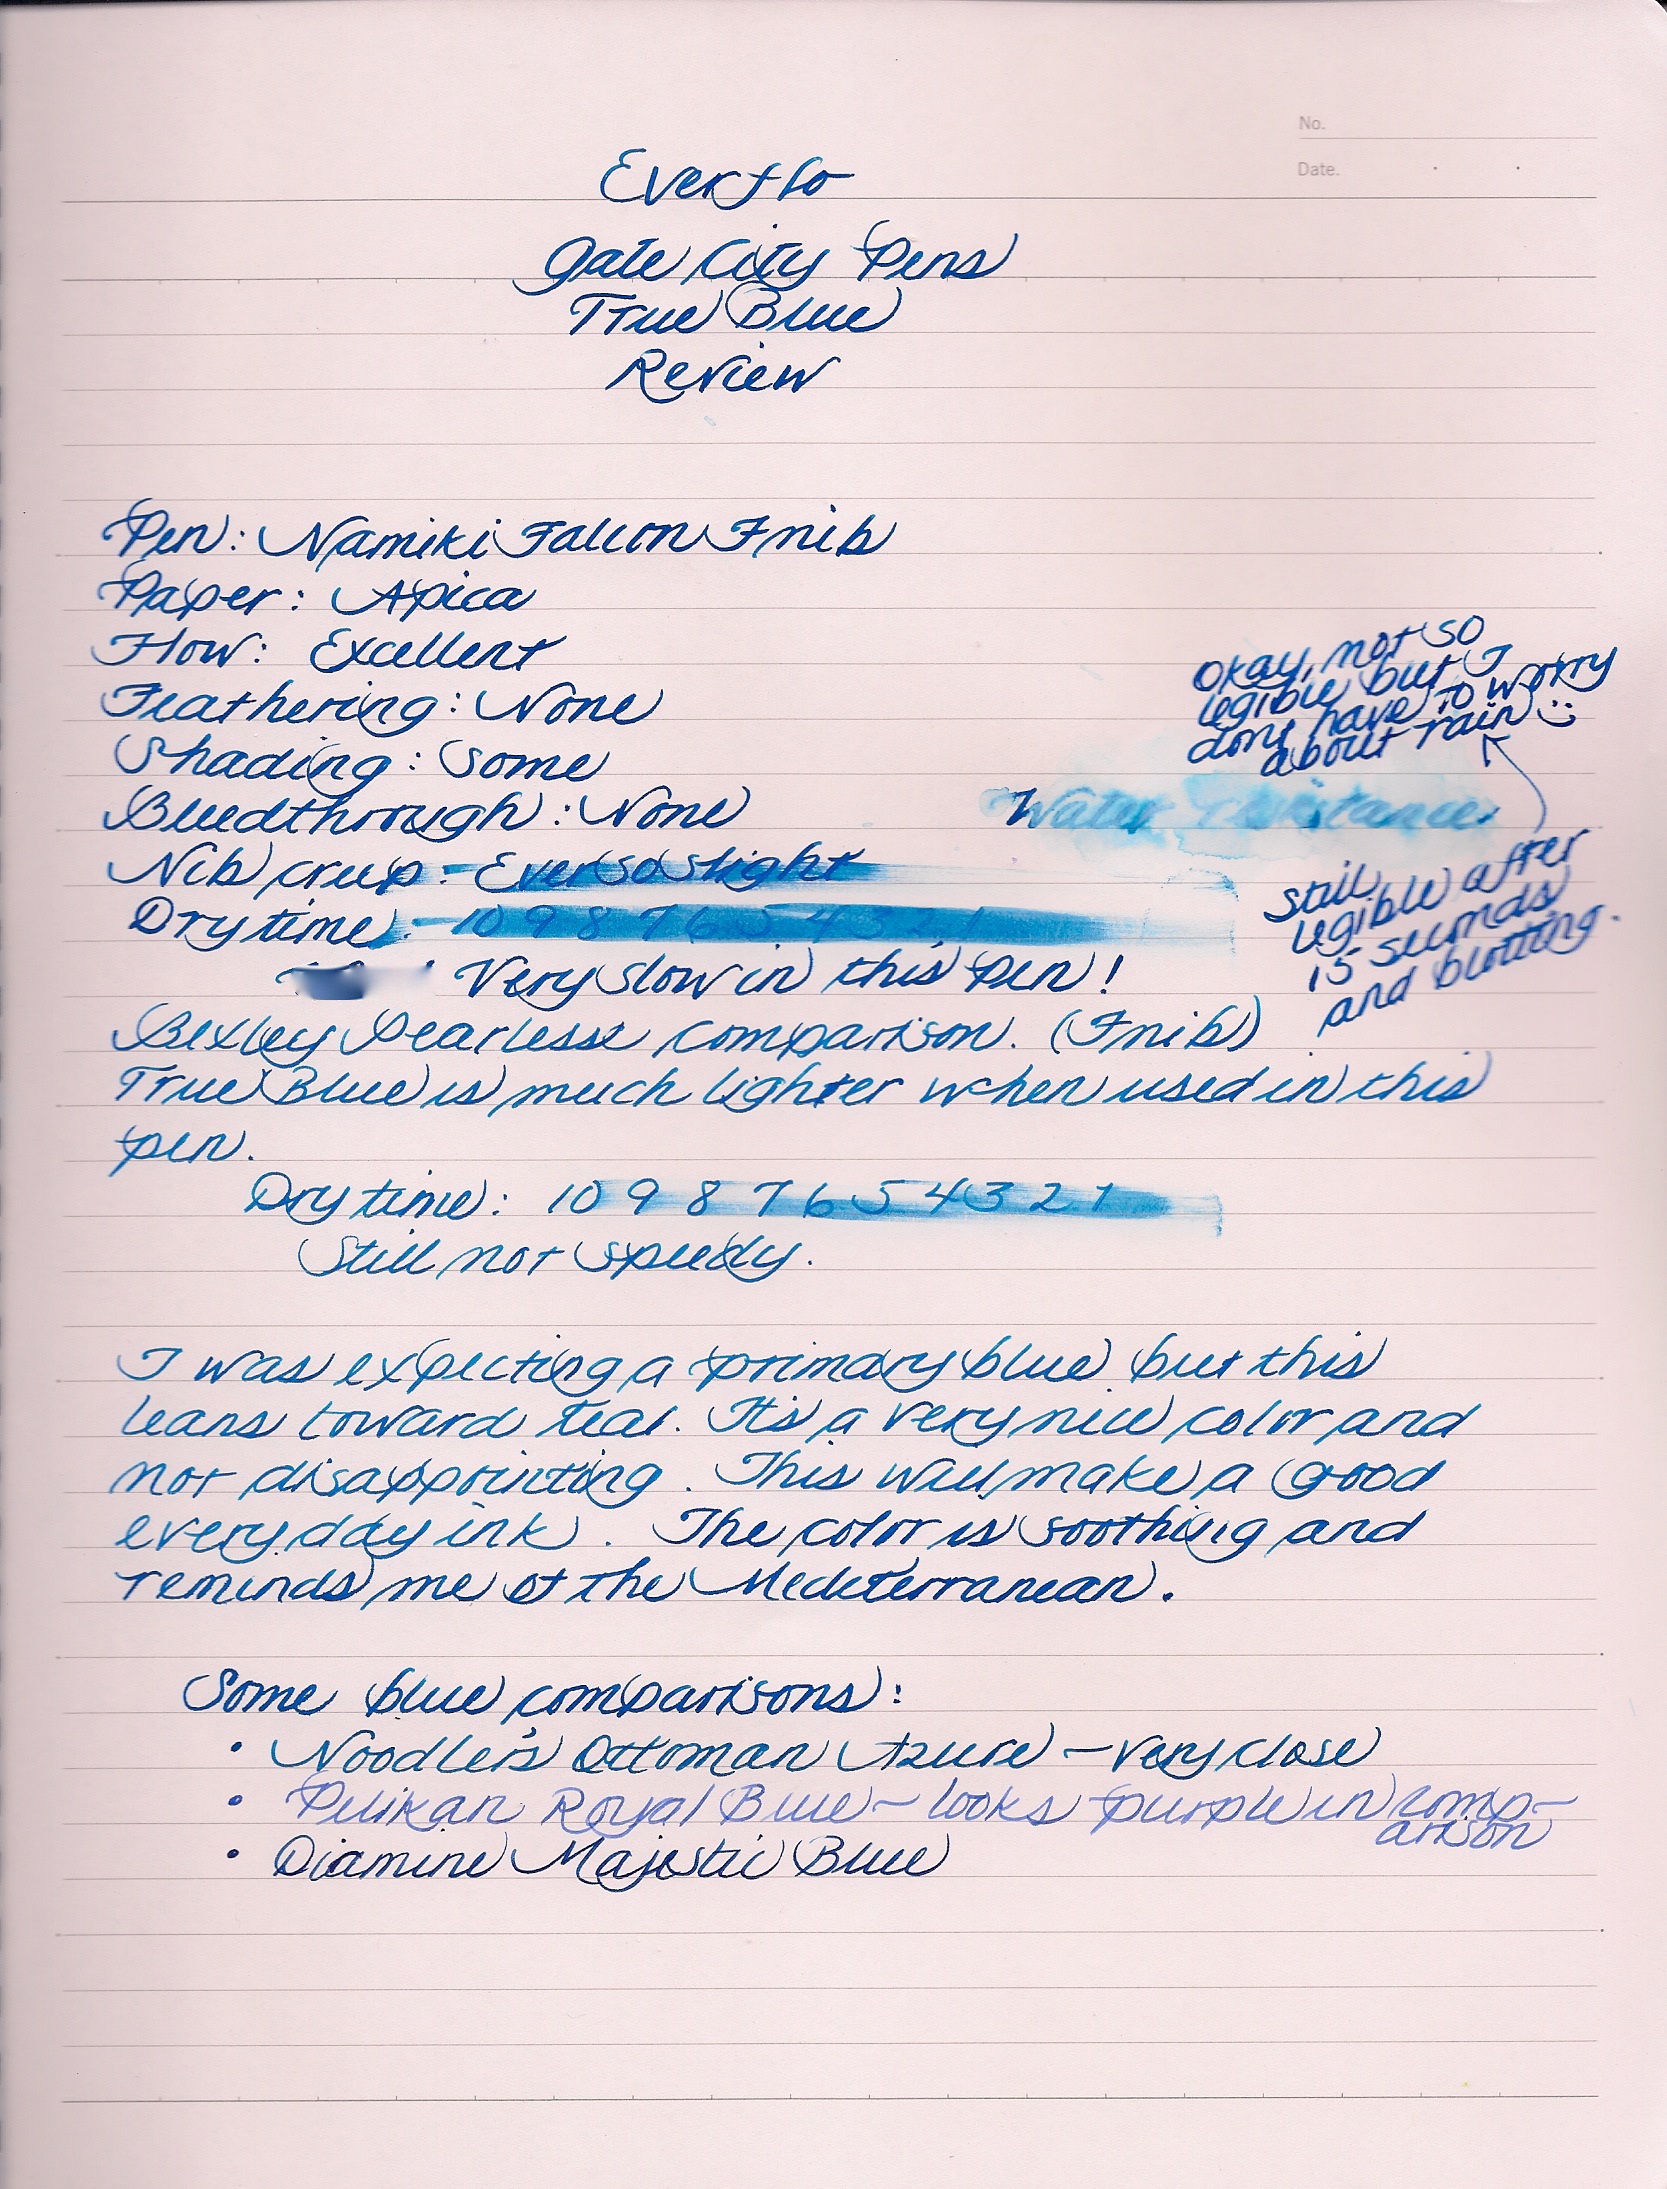 No.
Date.
Everflo
Gate City Pens
True Blue
Review
Pen: Namiki Falcon F nib
Paper: Apica
Flow: Excellent
Feathering: None
Shading: Some
Bleedthrough: None
Nib creep: Ever so slight
Dry time: 10 9 8 7 6 5 4 3 2 1
Very slow in this pen!
Okay, not so
legible but I
dont have to worry
about rain :)
Water Resistance
still
legible after
15 seconds
and blotting.
Bexley Pearlesse comparison. (F nib)
True Blue is much lighter when used in this
pen.
Dry time: 10 9 8 7 6 5 4 3 2 1
Still not speedy.
I was expecting a primary blue but this
leans toward teal. It's a very nice color and
not disappointing. This will make a good
every day ink. The color is soothing and
reminds me of the Mediterranean.
Some blue comparisons:
• Noodler's Ottoman Azure - very close
• Pelikan Royal Blue - looks purple in comp-
arison
• Diamine Majestic Blue